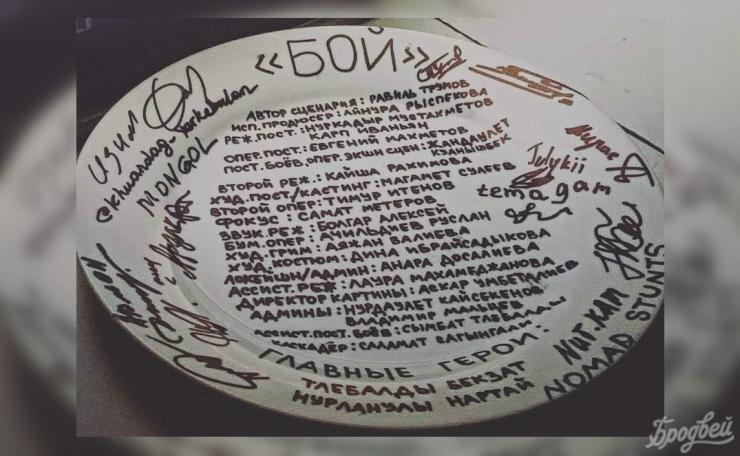 «БОЙ»
АВТОР СЦЕНАРИЯ: РАВИЛЬ ТРУМОВ
ИСП. ПРОДЮСЕР: АЙНУРА РЫСПЕКОВА
РЕЖ. ПОСТ.: НУРКАДЫР МУСТАХМЕТОВ
КАРП ИВАНЬЯН
ОПЕР. ПОСТ.: ЕВГЕНИЙ МАХМЕТОВ
ПОСТ. БОЁВ, ОПЕР. ЭКШН СЦЕН: ЖАНДАУЛЕТ
КУАНЫШБЕК
ВТОРОЙ РЕЖ.: КАЙША РАХИМОВА
ХУД. ПОСТ/КАСТИНГ: МАГАМЕТ СУЛЕЕВ
ВТОРОЙ ОПЕР: ТИМУР ИТЕНОВ
ФОКУС: САМАТ МЕТЕРОВ
ЗВУК. РЕЖ: БОЛГАР АЛЕКСЕЙ
БУМ. ОПЕР: АЧИЛЬДИЕВ РУСЛАН
ХУД. ГРИМ: АЯЖАН ВАЛИЕВА
ХУД. КОСТЮМ: ДИНА ИБРАЙСАДЫКОВА
ЛОКЕЙШН/АДМИН: АНАРА ДОСАЛИЕВА
АССИСТ. РЕЖ: ЛАУРА МАХАМЕДЖАНОВА
ДИРЕКТОР КАРТИНЫ: АСКАР УМБЕТАЛИЕВ
АДМИНЫ: НУРДАУЛЕТ КАЙСЕКЕНОВ
ВЛАДИМИР МАЛЫШЕВ
АССИСТ. ПОСТ. БОЁВ: СЫМБАТ ТЛЕБАЛДЫ
КАСКАДЁР: САЛАМАТ САГЫНГАЛИ
ГЛАВНЫЕ ГЕРОИ:
ТЛЕБАЛДЫ БЕКЗАТ
НУРЛАНУЛЫ НАРТАЙ
ИЗИМ
MONGOL
Julykii
temagam
NOMAD STUNTS
Бродвей